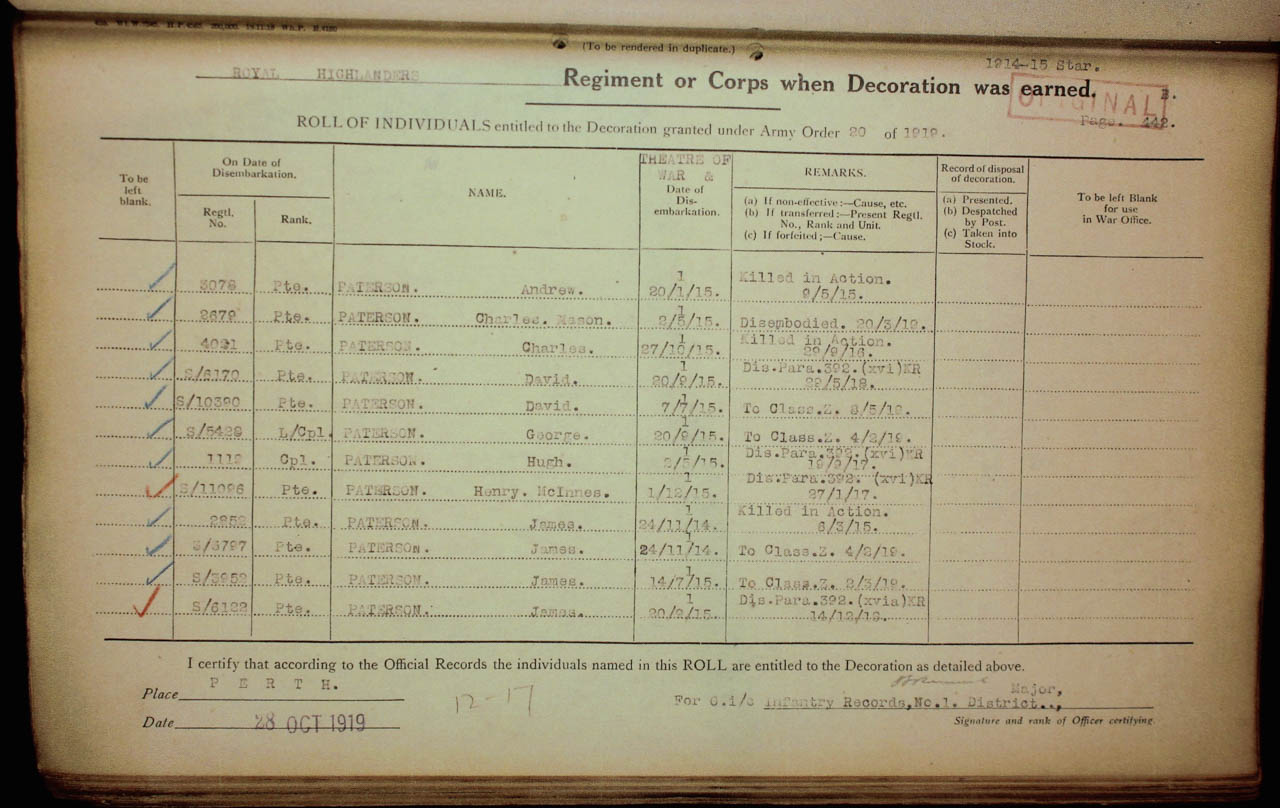 (To be rendered in duplicate.)
1914-15 Star.
ROYAL HIGHLANDERS Regiment or Corps when Decoration was earned.
ORIGINAL
Page. 442.
ROLL OF INDIVIDUALS entitled to the Decoration granted under Army Order 20 of 1919.
To be left blank.
On Date of Disembarkation.
Regtl. No.
Rank.
NAME.
THEATRE OF WAR & Date of Dis-embarkation.
REMARKS.
(a) If non-effective:—Cause, etc.
(b) If transferred:—Present Regtl. No., Rank and Unit.
(c) If forfeited;—Cause.
Record of disposal of decoration.
(a) Presented.
(b) Despatched by Post.
(c) Taken into Stock.
To be left Blank for use in War Office.
3078 Pte. PATERSON. Andrew. 1 20/1/15. Killed in Action. 9/5/15.
2679 Pte. PATERSON. Charles. Mason. 1 2/5/15. Disembodied. 20/3/19.
4021 Pte. PATERSON. Charles. 1 27/10/15. Killed in Action.
S/6170 Pte. PATERSON. David. 1 20/9/15. Dis.Para.392.(xvi)KR
S/10390 Pte. PATERSON. David. 1 7/7/15. To Class.Z.
S/5429 L/Cpl. PATERSON. George. 1 20/9/15. To Class.Z. 4/2/19.
Cpl. PATERSON. Hugh. 1 2/5/15. Dis.Para.392.(xvi)KR
S/11096 Pte. PATERSON. Henry. McInnes. 1 1/12/15. Dis.Para.392. (xvi)KR 27/1/17.
Pte. PATERSON. James. 1 24/11/14. Killed in Action.
Pte. PATERSON. James. 1 24/11/14. To Class.Z. 4/2/19.
S/3952 Pte. PATERSON. James. 1 14/7/15. To Class.Z. 2/3/19.
S/6122 Pte. PATERSON. James. 1 Dis.Para.392.(xvia)KR
I certify that according to the Official Records the individuals named in this ROLL are entitled to the Decoration as detailed above.
Place PERTH.
12-17
Major,
For O.i/c Infantry Records,No.1. District..,
Date 28 OCT 1919
Signature and rank of Officer certifying.